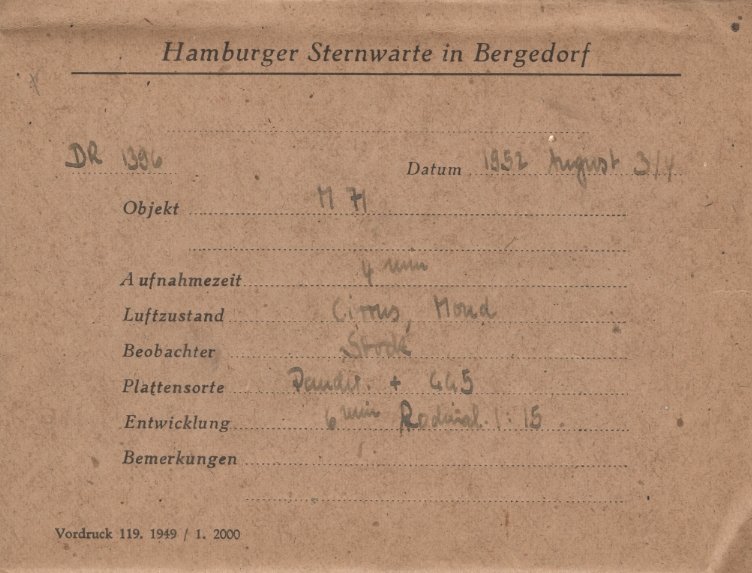 Hamburger Sternwarte in Bergedorf
DR 1396 Datum 1952 August 3/4
Objekt M 71
Aufnahmezeit 4 min
Luftzustand Cirrus, Mond
Beobachter Stock
Plattensorte + GG5
Entwicklung 6 min Rodinal 1:15
Bemerkungen
Vordruck 119. 1949 / 1. 2000